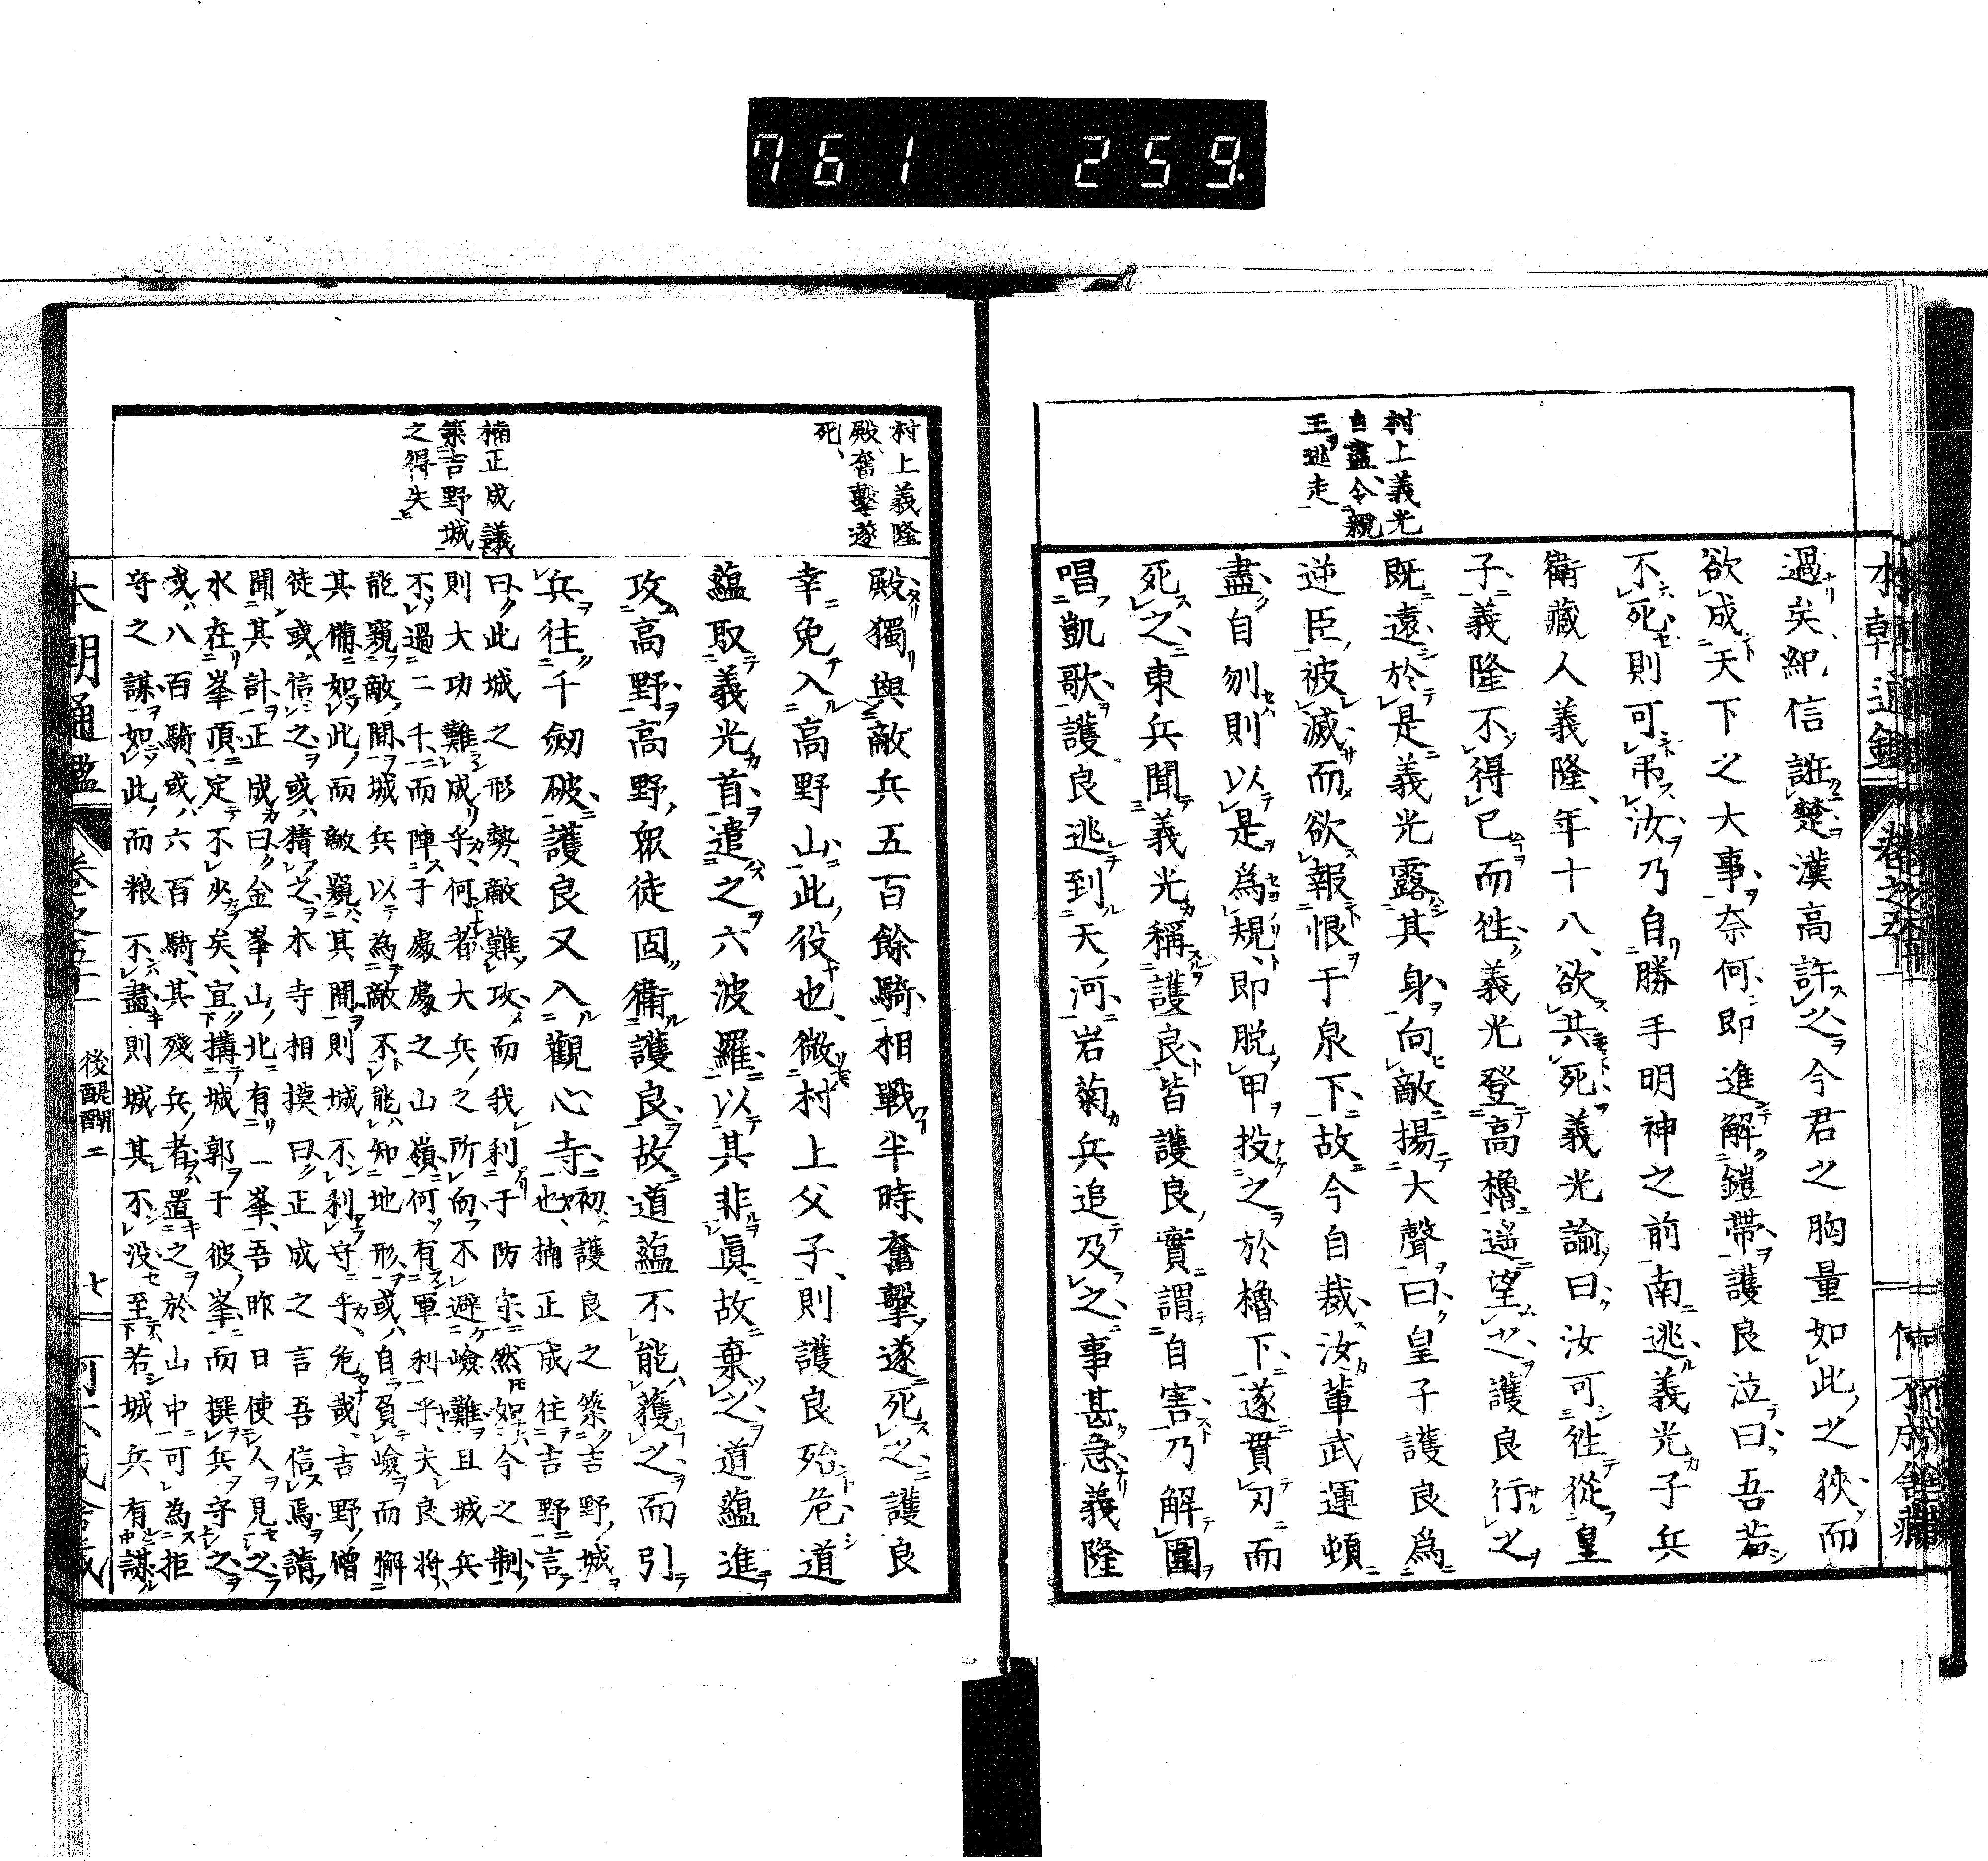 761 259.
村上義光
自盡、令親
王逃走
過矣、紀信誑楚、漢高許之、今君之胸量如此之狹、而
欲成天下之大事、奈何、即進解鎧帶、護良泣曰、吾若
不死、則可弔汝、乃自勝手明神之前南逃、義光子兵
衛藏人義隆、年十八、欲共死、義光諭曰、汝可徃從皇
子、義隆不得已而徃、義光登高櫓遥望之、護良行之
既遠、於是義光露其身、向敵揚大聲曰、皇子護良為
逆臣被滅、而欲報恨于泉下、故今自裁、汝輩武運頓
盡、自刎則以是爲規、即脱甲投之於櫓下、遂貫刃而
死之、東兵聞義光稱護良、皆護良實謂自害、乃解圍
唱凱歌、護良逃到天河、岩菊兵追及之、事甚急、義隆
村上義隆
殿、奮擊遂
死、
楠正成議
築吉野城
之得失
殿獨與敵兵五百餘騎相戰半時、奮擊遂死之、護良
幸免入高野山、此役也、微村上父子、則護良殆危、道
蘊取義光首、遣之六波羅、以其非眞故棄之、道蘊進
攻高野、高野衆徒固衛護良、故道蘊不能獲之而引
兵徃千劒破、護良又入觀心寺、
初護良之築吉野城
也、楠正成往吉野言
曰、此城之形勢、敵難攻、而我利于防宗、然如今之制、
則大功難成乎、何者大兵之所向、不避嶮難、且城兵
不過二千、而陣于處處之山嶺、何有軍利乎、夫良將
能窺敵間、城兵以為敵不能知地形、或自負嶮而懈
其備、如此而敵窺其間、則城不利守乎、危哉、吉野僧
徒或信之、或猜之、木寺相摸曰、正成之言吾信焉、請
聞其計、正成曰、金峯山北有一峯、吾昨日使人見之、
水在峯頂、定不少矣、宜搆城郭于彼峯、而撰兵守之、
或八百騎、或六百騎、其殘兵者置之於山中、可為拒
守之謀、如此而粮不盡、則城其不没、至若城兵有謀
本朝通鑑
後醍醐二
七